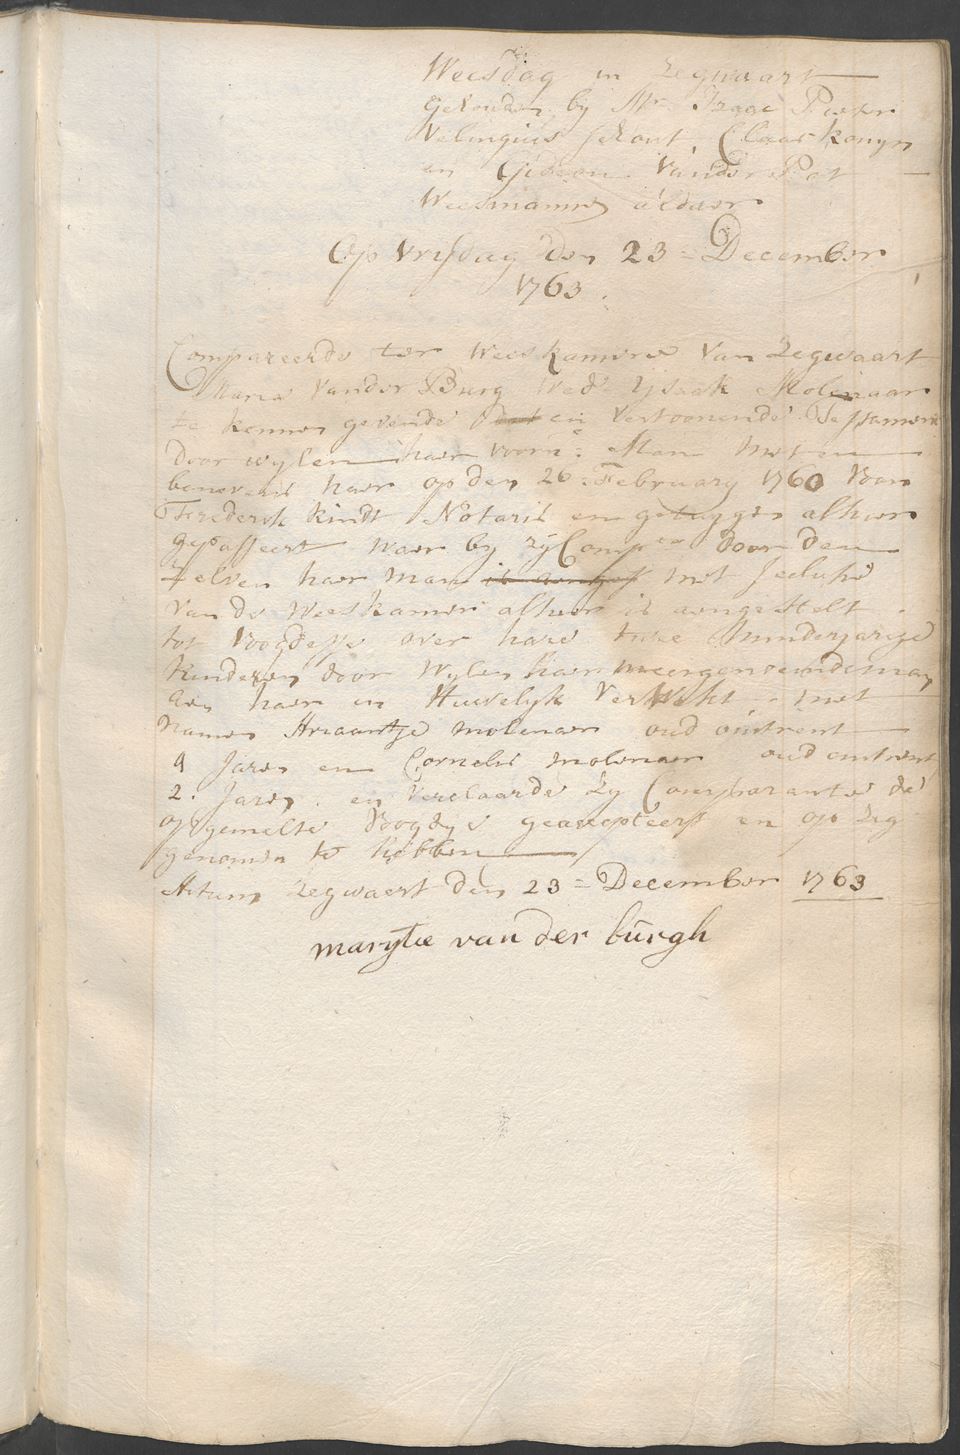 Weesdag in Zegwaart
gehouden by Mr. Izaac Pieter
Velingius schout, Claas Konyn
en Gideon van der Pot
Weesmannen aldaer
Op Vrijdag den 23 = December
1763.
Compareerde ter Weeskamere van Zegwaart
Maria van der Burg Wed Ysaak Molenaar
te kennen gevende dat en vertoonende Testament
door wylen haer voorn: Man met en
benevens haer op den 26 February 1760 voor
Frederik Kindt Notaris en getuygen alhier
gepasseert waer by zy Compte door den
zelven haer man is aenges met seclusie
van de Weeskamer alhier is aengestelt
tot voogdesse over hare twee minderjarige
kinderen door wylen haer meergenoemde man
aen haer in Huwelyk verwekt met
namen Ariaantje molenaer oud omtrent
4 Jaren en Cornelis molenaer oud omtrent
2. Jaren. en verclaarde Zy Comparante de
opgemelte voogdye geaccepteert en op zig
genomen te hebben
Actum Zegwaert den 23 = December 1763
marytie van der burgh